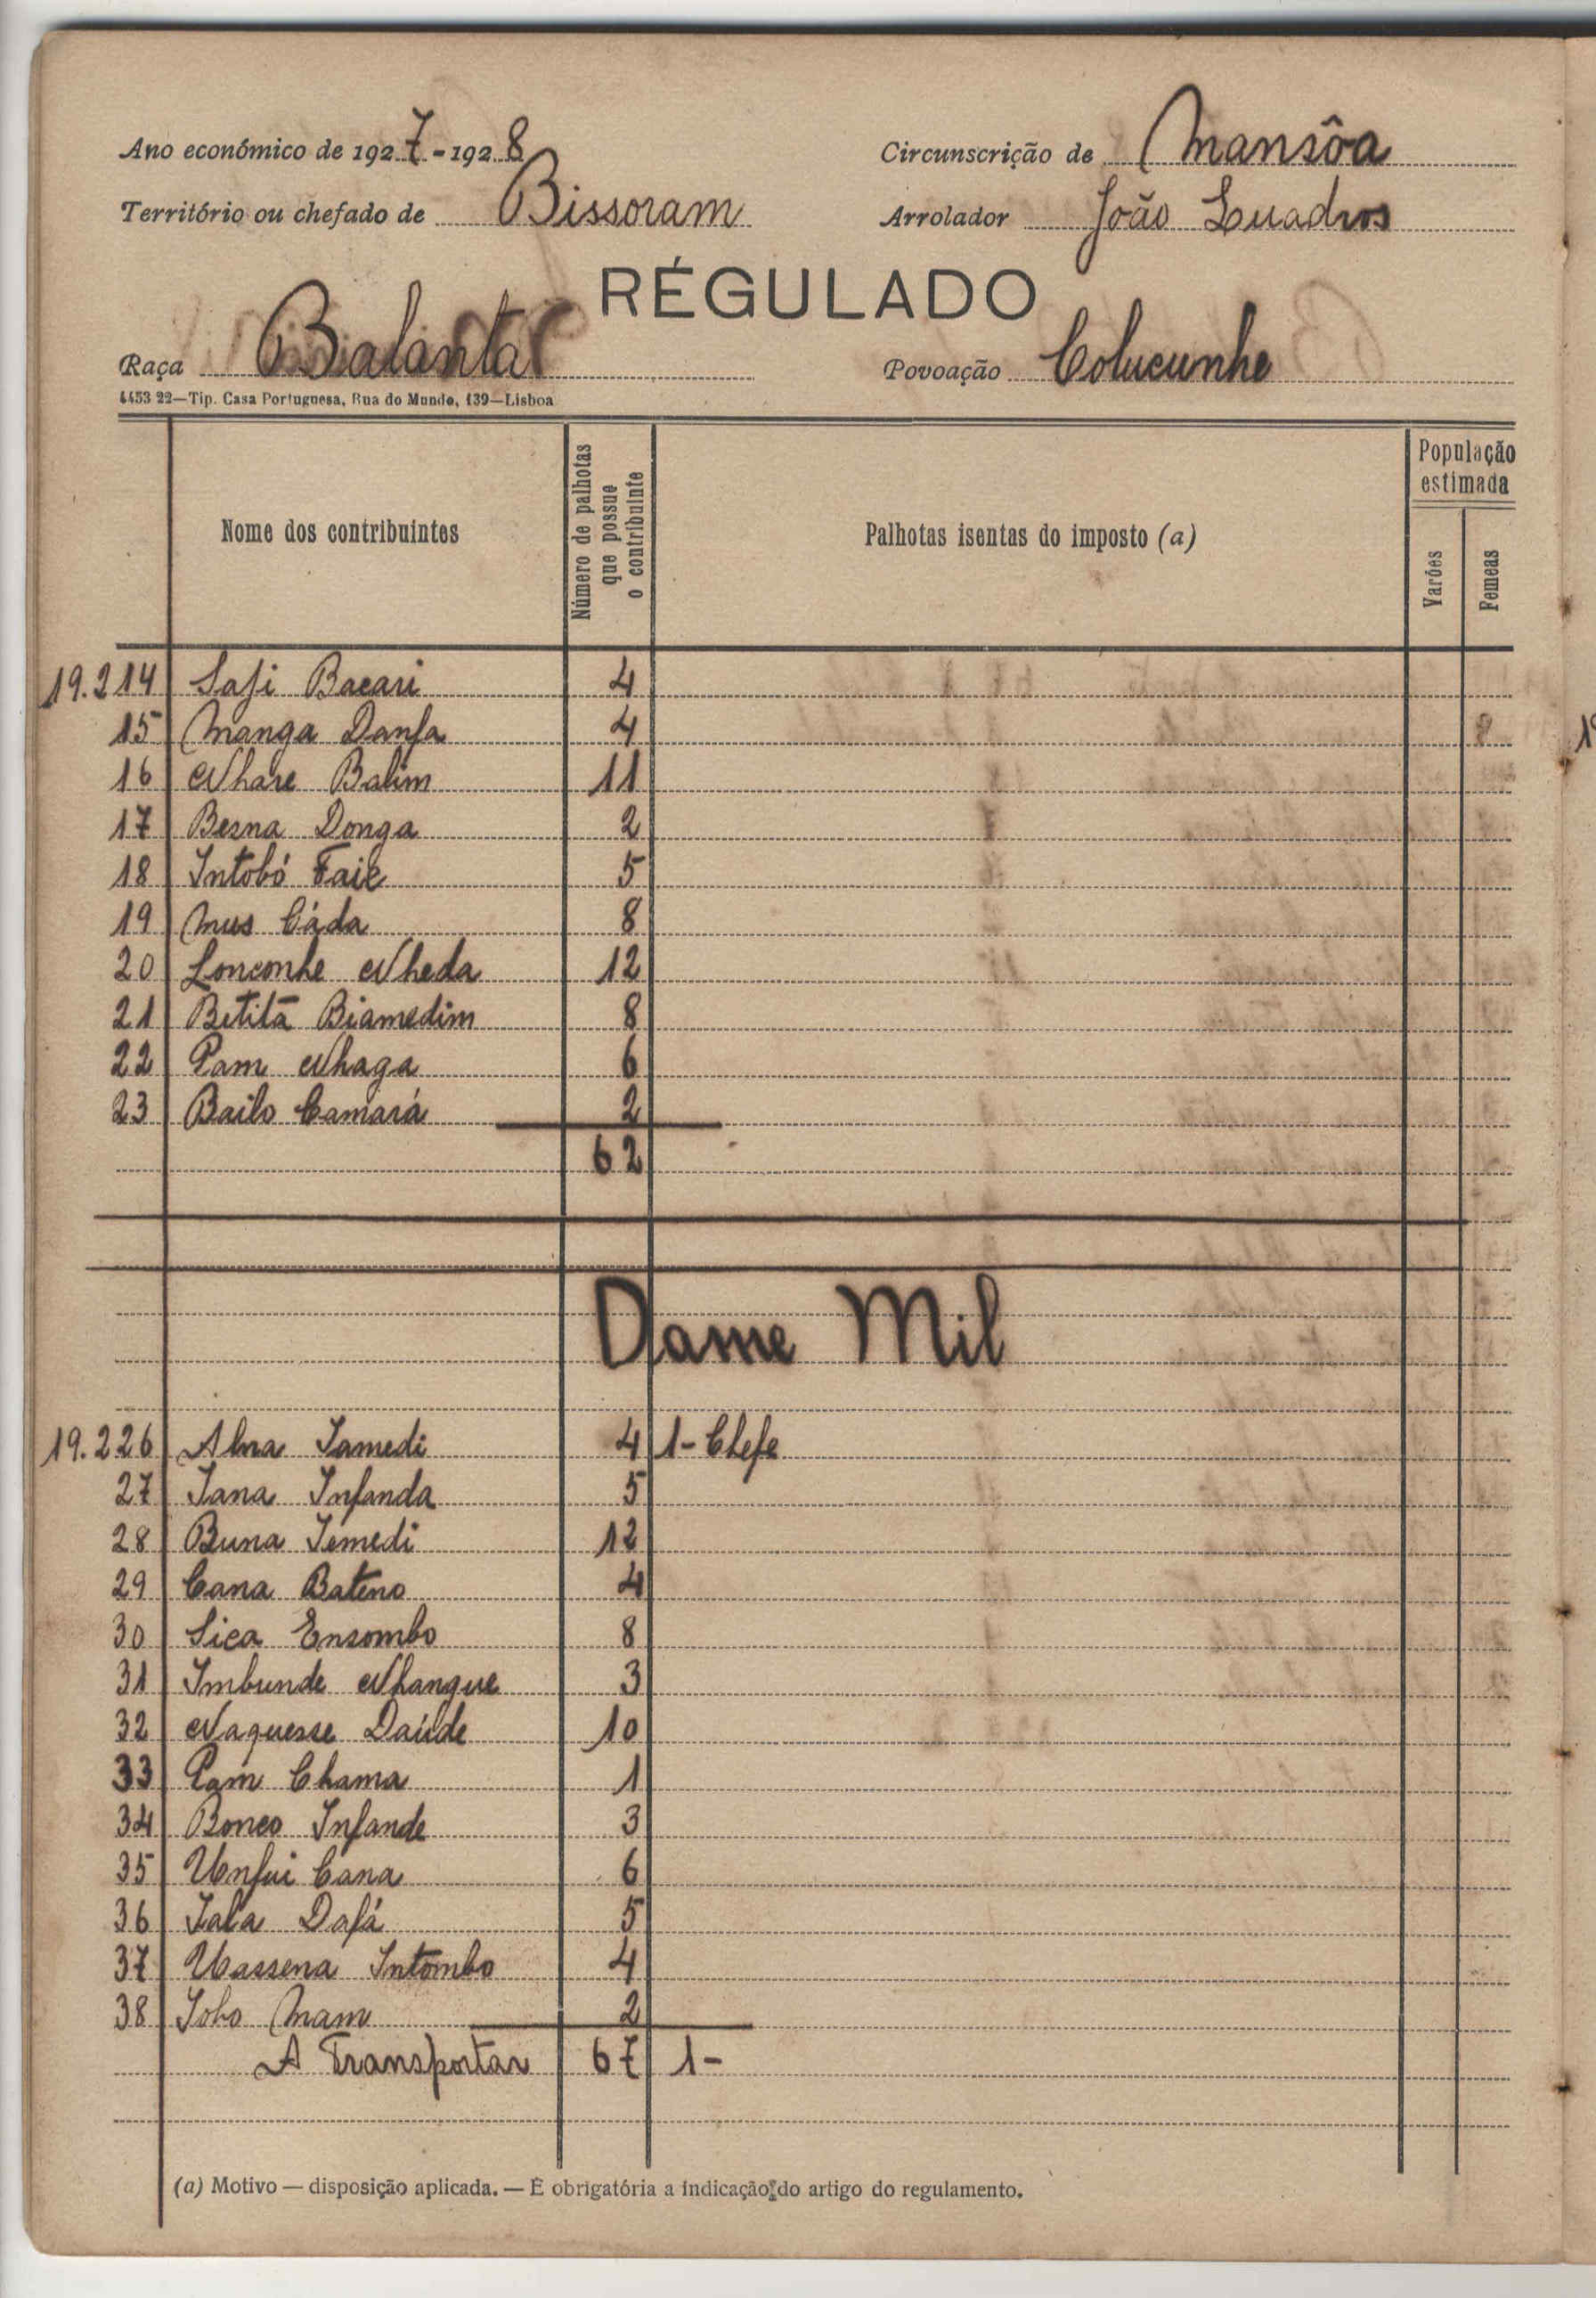 Ano económico de 1927-1928
Circunscrição de Mansôa
Território ou chefado de Bissoram
Arrolador João Quadros
RÉGULADO
Raça Balanta
Povoação Colucunhe
4453 22—Tip. Casa Portuguesa, Rua do Mundo, 139—Lisboa
Nome dos contribuintes
Número de palhotas que possue o contribuinte
Palhotas isentas do imposto (a)
População estimada
Varões
Femeas
19.214 Safi Bacari 4
15 Manga Danfa 4
16 Nhare Balim 11
17 Besna Donga 2
18 Intobó Faié 5
19 Mus Cáda 8
20 Lonconhe Nheda 12
21 Betitã Biamedim 8
22 Pam Nhaga 6
23 Bailo Camará 2
62
Dame Mil
19.226 Alna Samedi 4 1-Chefe
27 Jana Infanda 5
28 Buna Témedi 12
29 Cana Bateno 4
30 Sica Ensombo 8
31 Imbunde Nhanque 3
32 Naquesse Daúde 10
33 Pam Chama 1
34 Bonco Infande 3
35 Unfui Cana 6
36 Jala Dafá 5
37 Uassena Intombo 4
38 Joho Mam 2
A Transportar 67 1-
(a) Motivo — disposição aplicada. — É obrigatória a indicação do artigo do regulamento.